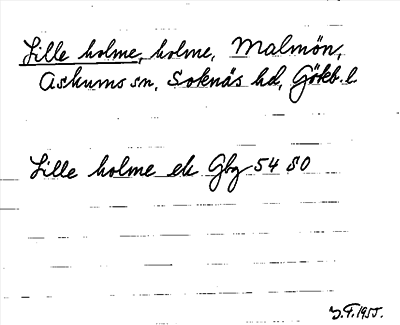 Lille holme, holme, Malmön,
Askums sn, Soknäs hd, Gökb. l.
Lille holme ek Gbg 54 SO
Y.F. 1955.